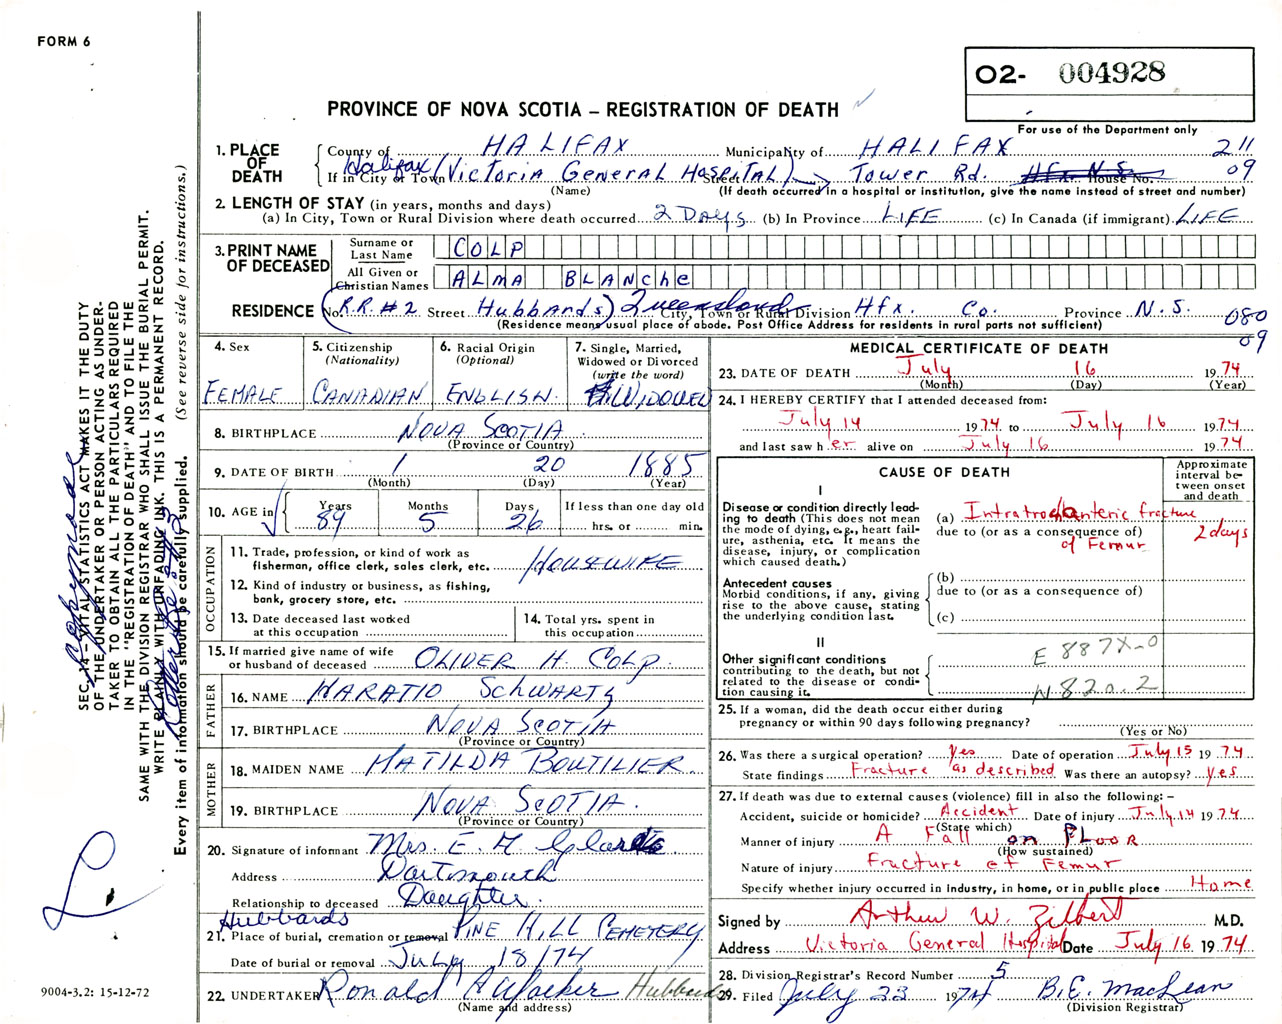 FORM 6
O2- 004928
For use of the Department only
PROVINCE OF NOVA SCOTIA – REGISTRATION OF DEATH
1. PLACE OF DEATH
County of HALIFAX Municipality of HALIFAX 211
If in City or Town Halifax (Victoria General Hospital) Street Tower Rd. Hfx. N.S. House No. 09
(Name) (If death occurred in a hospital or institution, give the name instead of street and number)
2. LENGTH OF STAY (in years, months and days)
(a) In City, Town or Rural Division where death occurred 2 Days (b) In Province LIFE (c) In Canada (if immigrant) LIFE
3. PRINT NAME OF DECEASED
Surname or Last Name COLP
All Given or Christian Names ALMA BLANChe
RESIDENCE No. (R.R.#2 Street Hubbards) Queensland City, Town or Rural Division Hfx. Co. Province N.S. 080
(Residence means usual place of abode. Post Office Address for residents in rural parts not sufficient) 09
4. Sex FEMALE
5. Citizenship (Nationality) CANADIAN
6. Racial Origin (Optional) ENGLISH
7. Single, Married, Widowed or Divorced (write the word) WIDOWED
8. BIRTHPLACE NOVA SCOTIA
(Province or Country)
9. DATE OF BIRTH 1 20 1885
(Month) (Day) (Year)
10. AGE in Years 89 Months 5 Days 26 If less than one day old hrs. or min.
OCCUPATION
11. Trade, profession, or kind of work as fisherman, office clerk, sales clerk, etc. HOUSEWIFE
12. Kind of industry or business, as fishing, bank, grocery store, etc.
13. Date deceased last worked at this occupation
14. Total yrs. spent in this occupation
15. If married give name of wife or husband of deceased OLIVER H. COLP.
FATHER
16. NAME HARATIO SCHWARTZ
17. BIRTHPLACE NOVA SCOTIA
(Province or Country)
MOTHER
18. MAIDEN NAME MATILDA BOUTILIER
19. BIRTHPLACE NOVA SCOTIA.
(Province or Country)
20. Signature of informant Mrs. E. M
Address Dartmouth
Relationship to deceased Daughter
Hubbards
21. Place of burial, cremation or removal PINE HILL CEMETERY
Date of burial or removal JULY 18/74
22. UNDERTAKER Ronald A Walker Hubbards
(Name and address)
MEDICAL CERTIFICATE OF DEATH
23. DATE OF DEATH July 16 1974
(Month) (Day) (Year)
24. I HEREBY CERTIFY that I attended deceased from:
July 14 1974 to July 16 1974
and last saw her alive on July 16 1974
CAUSE OF DEATH
Approximate interval between onset and death
I
Disease or condition directly leading to death (This does not mean the mode of dying, e.g., heart failure, asthenia, etc. It means the disease, injury, or complication which caused death.)
(a) Intratrochanteric fracture of Femur 2 days
due to (or as a consequence of)
Antecedent causes
Morbid conditions, if any, giving rise to the above cause, stating the underlying condition last.
(b)
due to (or as a consequence of)
(c)
II
Other significant conditions contributing to the death, but not related to the disease or condition causing it.
E 887X-0
N 820.2
25. If a woman, did the death occur either during pregnancy or within 90 days following pregnancy?
(Yes or No)
26. Was there a surgical operation? Yes Date of operation July 15 1974
State findings Fracture as described Was there an autopsy? yes
27. If death was due to external causes (violence) fill in also the following: –
Accident, suicide or homicide? Accident Date of injury July 14 1974
(State which)
Manner of injury A Fall on FLOOR
(How sustained)
Nature of injury Fracture of Femur
Specify whether injury occurred in Industry, in home, or in public place Home
Signed by Arthur W. Zilbert M.D.
Address Victoria General Hospital Date July 16 1974
28. Division Registrar's Record Number 5
29. Filed July 23 1974 B.E. MacLean
(Division Registrar)
SEC. 14 – VITAL STATISTICS ACT MAKES IT THE DUTY
OF THE UNDERTAKER OR PERSON ACTING AS UNDER-
TAKER TO OBTAIN ALL THE PARTICULARS REQUIRED
IN THE "REGISTRATION OF DEATH" AND TO FILE THE
SAME WITH THE DIVISION REGISTRAR WHO SHALL ISSUE THE BURIAL PERMIT.
WRITE PLAINLY WITH UNFADING INK. THIS IS A PERMANENT RECORD.
Every item of information should be carefully supplied. (See reverse side for instructions.)
9004-3.2: 15-12-72